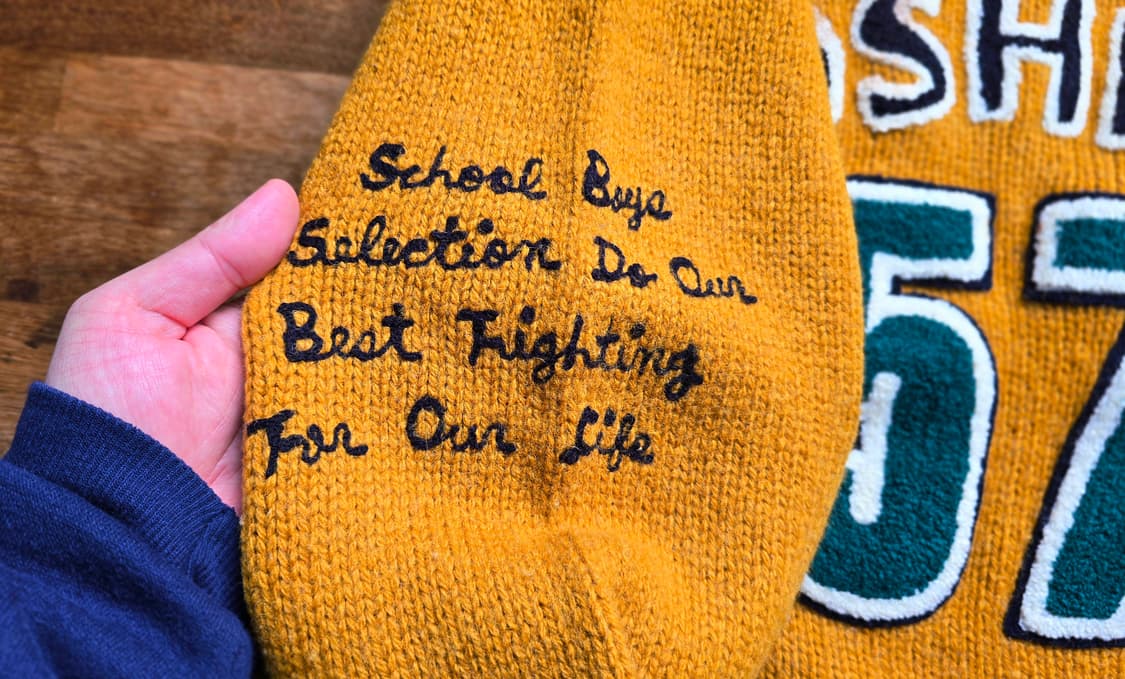 School Boys
Selection Do Our
Best Frighting
For Our Life
SH
57